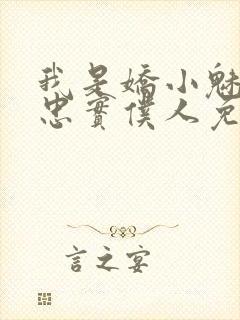 我是嬌小魅
忠實僕人兔
言之宴